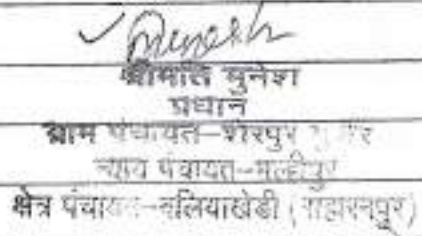 Munesh
श्रीमति मुनेश
प्रधान
ग्राम पंचायत-शेरपुर
न्याय पंचायत-मल्हीपुर
क्षेत्र पंचायत-बलियाखेडी (सहारनपुर)